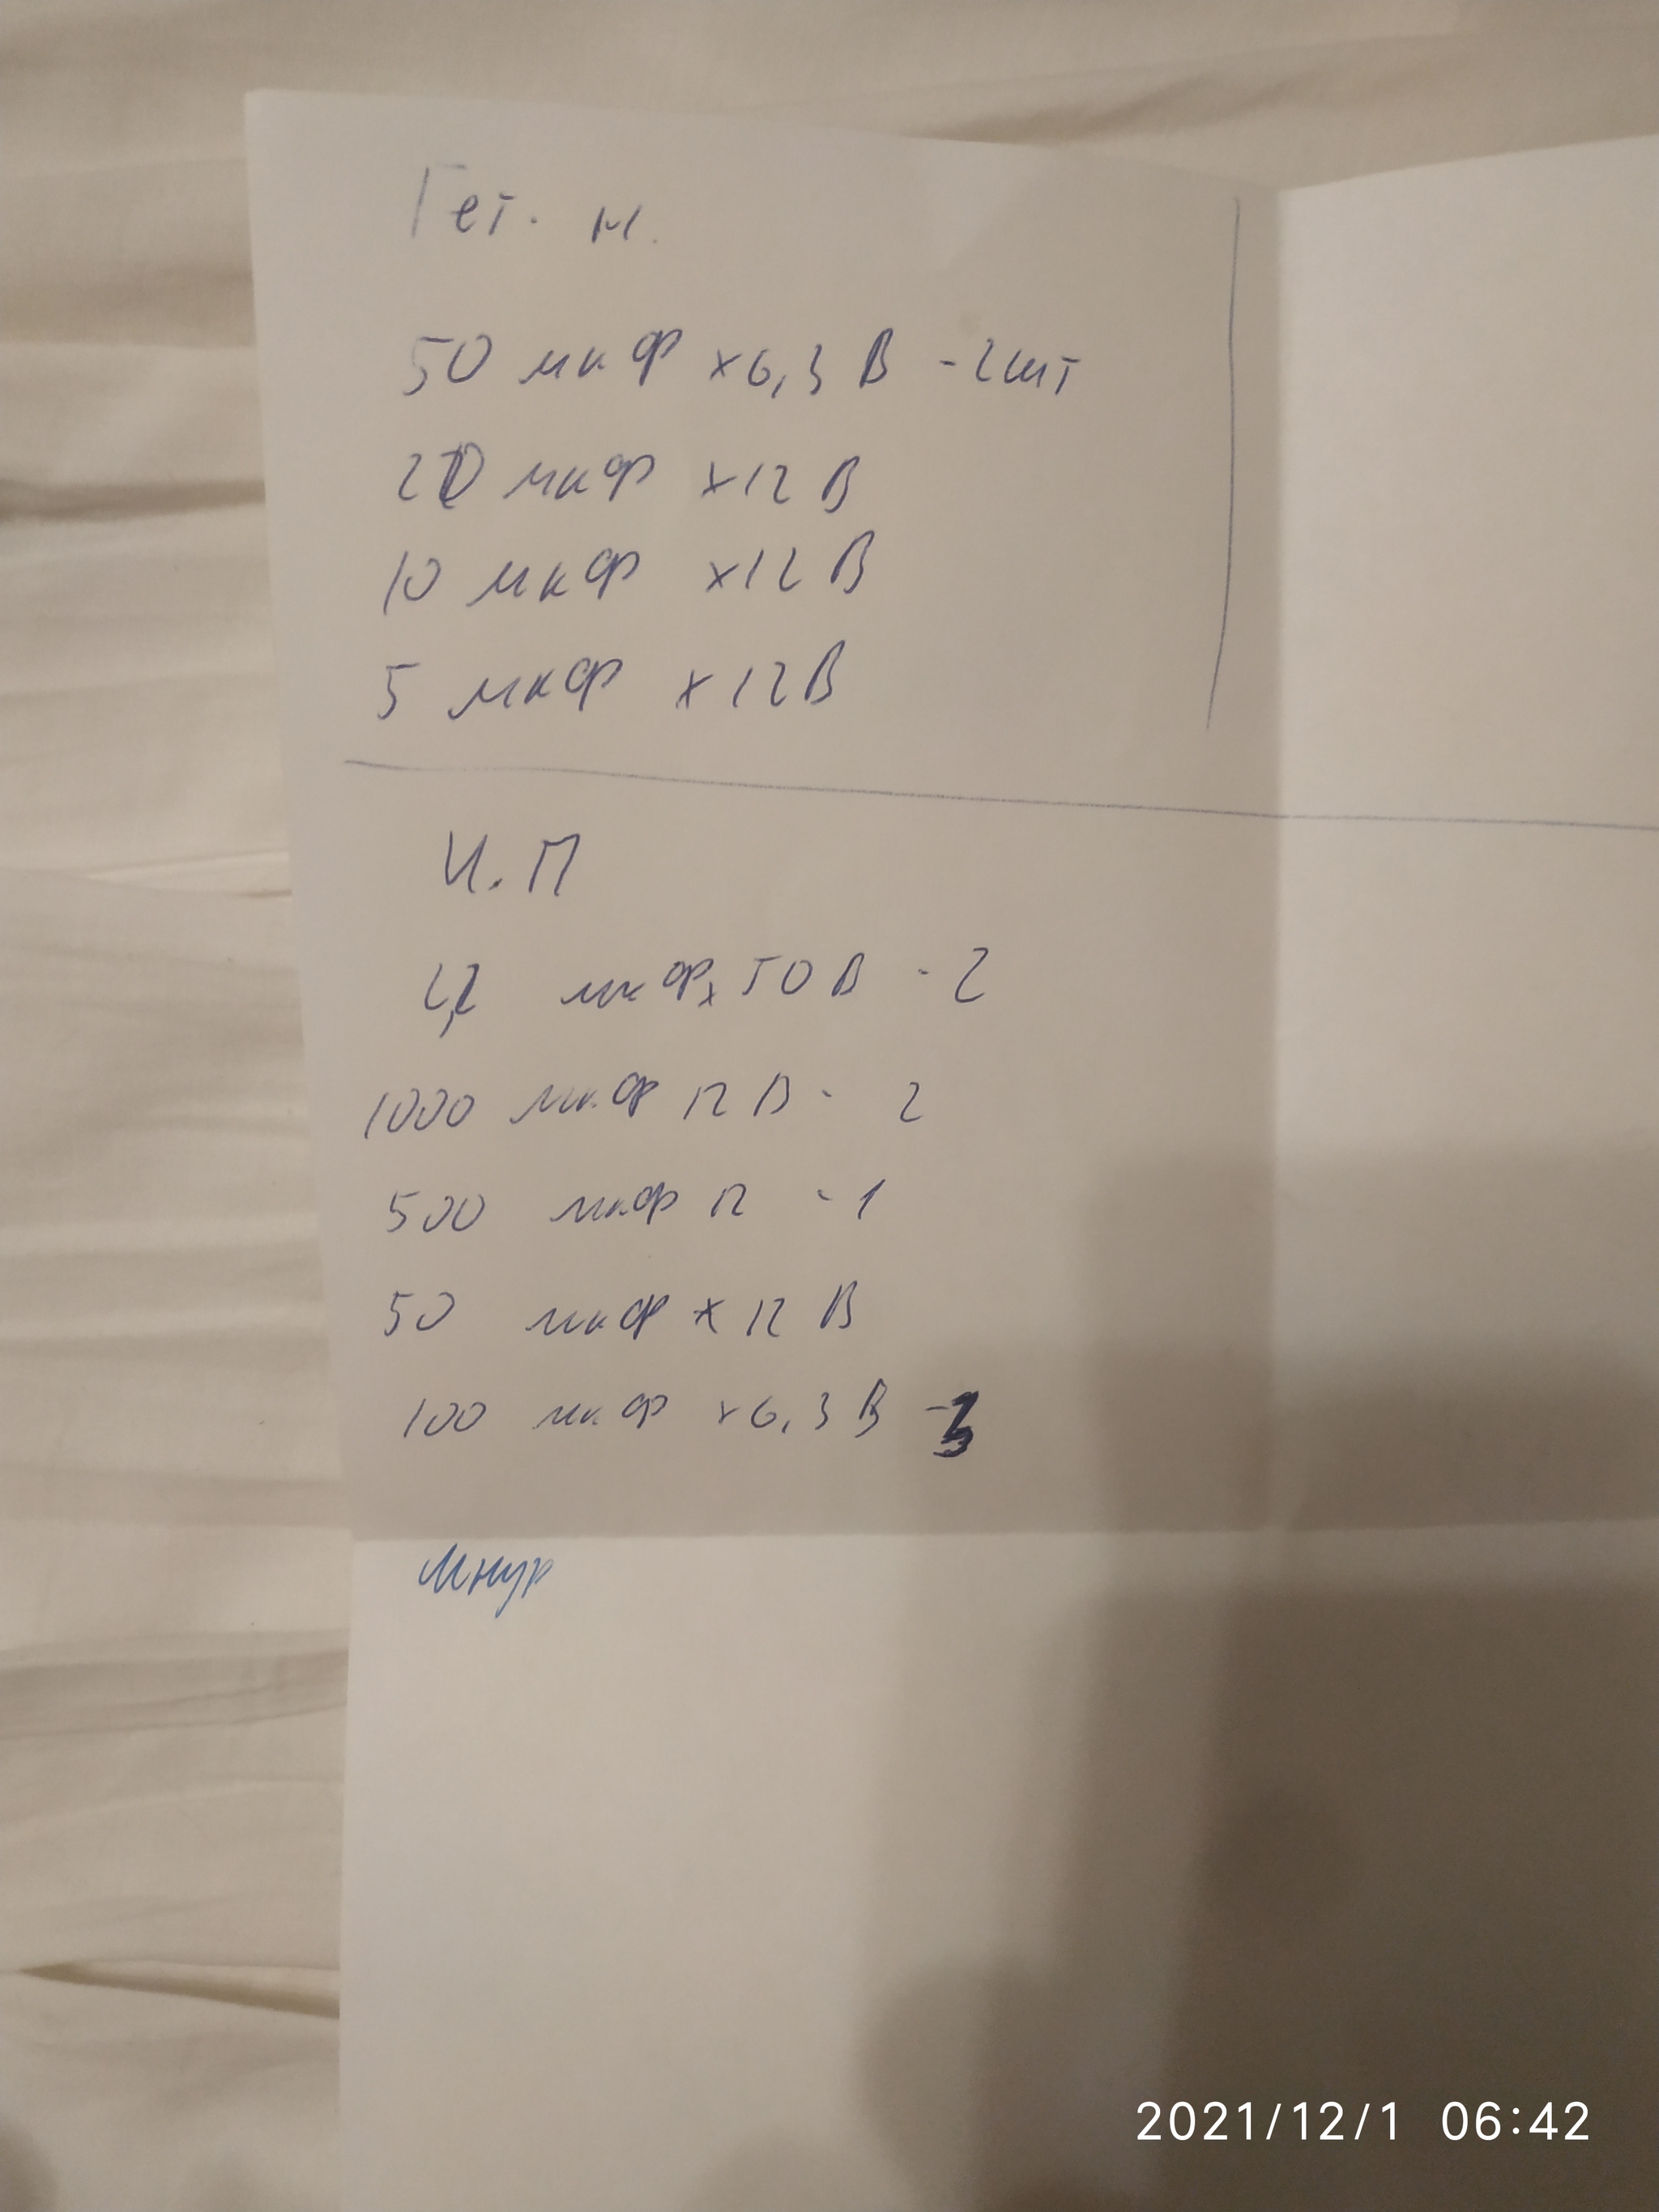 Гет. н.
50 мкФ х6,3 В - 2шт
20 мкФ х12 В
10 мкФ х12 В
5 мкФ х12В
И.П
2,2 мкФх50В - 2
1000 мкФ 12 В - 2
500 мкФ 12 - 1
50 мкФ х 12 В
100 мкФ х6,3 В - 3
Шнур
2021/12/1 06:42